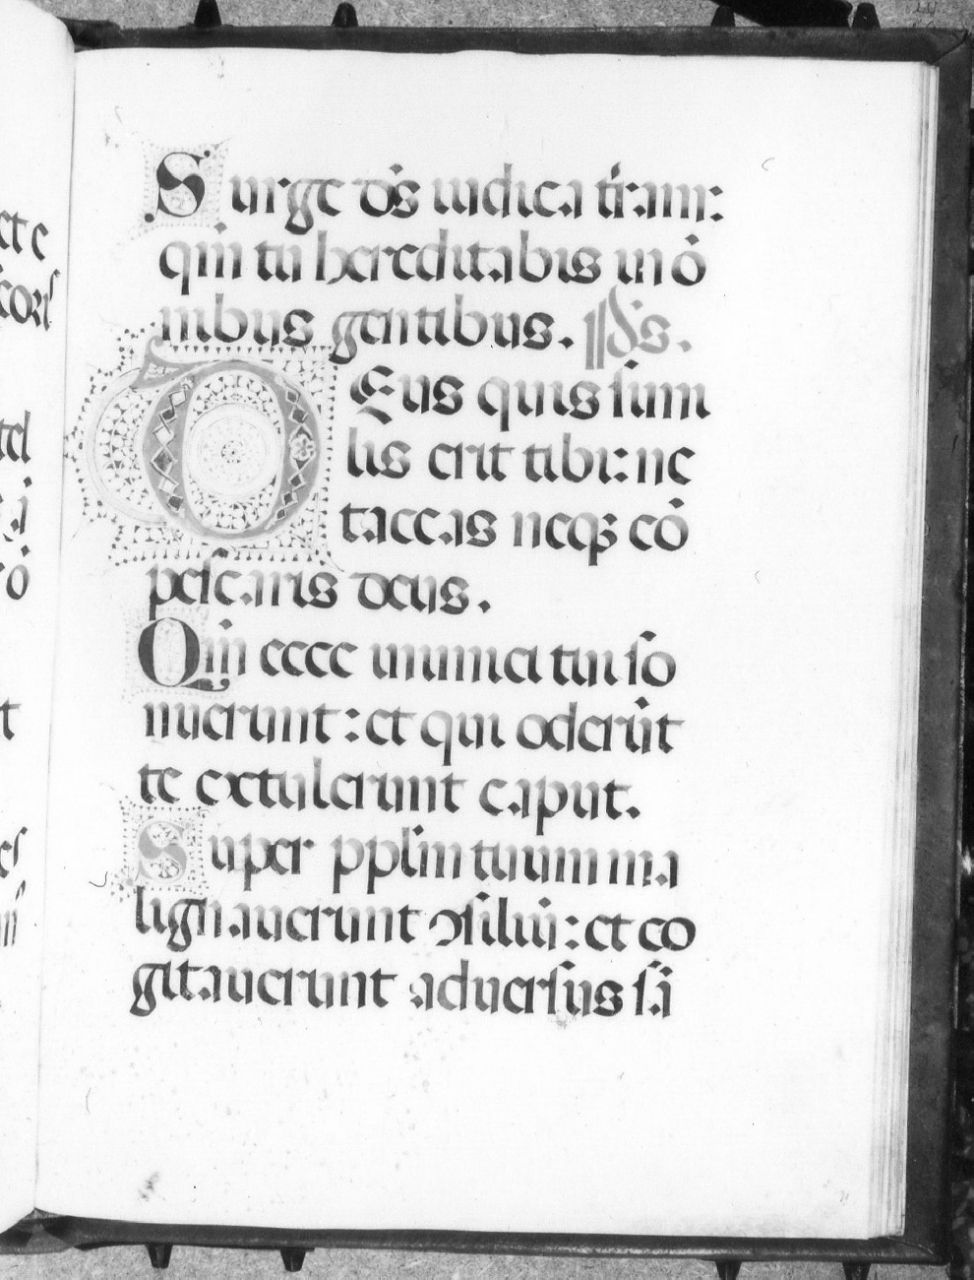 et e
Surge dn̄s iudica tr̄am:
qm̄ tu hereditabis in ō
nibus gentibus. ps̄.
Deus quis simi
lis erit tibi: ne
taceas neqꝫ cō
pescaris deus.
Qm̄ ecce inimici tui so
nuerunt: et qui oderūt
te extulerunt caput.
Super pplm̄ tuum ma
lignauerunt ↄsiliū: et co
gitauerunt aduersus sā